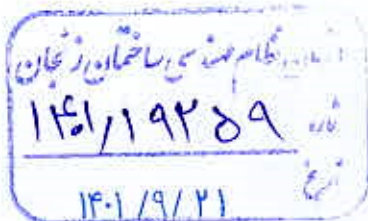 سازمان نظام مهندسی ساختمان زنجان
شماره ۱۴۰۱/۱۹۲۵۹
تاریخ ۱۴۰۱/۹/۲۱